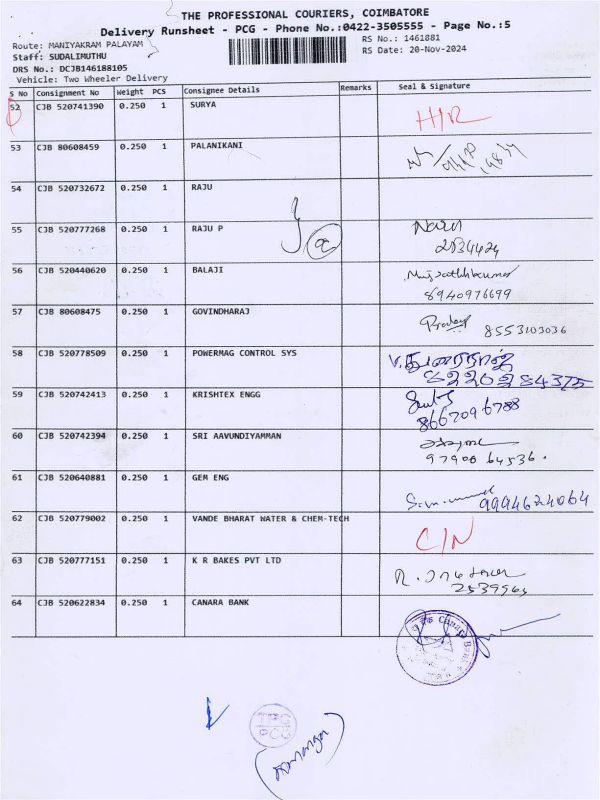 THE PROFESSIONAL COURIERS, COIMBATORE
Delivery Runsheet - PCG - Phone No.:0422-3505555 - Page No.:5
Route: MANIYAKRAM PALAYAM
RS No.: 1461881
Staff: SUDALIMUTHU
RS Date: 20-Nov-2024
DRS No.: DCJB146188105
Vehicle: Two Wheeler Delivery
S No Consignment No Weight PCS Consignee Details Remarks Seal & Signature
52 CJB 520741390 0.250 1 SURYA
53 CJB 80608459 0.250 1 PALANIKANI
54 CJB 520732672 0.250 1 RAJU
55 CJB 520777268 0.250 1 RAJU P
56 CJB 520440620 0.250 1 BALAJI
8940976699
57 CJB 80608475 0.250 1 GOVINDHARAJ
8553103036
58 CJB 520778509 0.250 1 POWERMAG CONTROL SYS
8220284375
59 CJB 520742413 0.250 1 KRISHTEX ENGG
8667096788
60 CJB 520742394 0.250 1 SRI AAVUNDIYAMMAN
97900 64536.
61 CJB 520640881 0.250 1 GEM ENG
9994624064
62 CJB 520779002 0.250 1 VANDE BHARAT WATER & CHEM-TECH
C/N
63 CJB 520777151 0.250 1 K R BAKES PVT LTD
64 CJB 520622834 0.250 1 CANARA BANK
Canara Bank
TPC
PCG